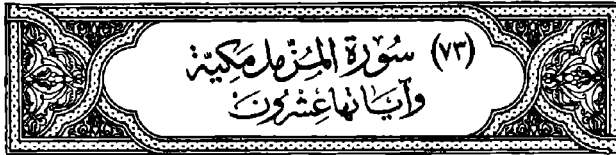 (٧٣) سُورَةِ المُزَّمل مَكِيَّة
وَآيَاتهَا عِشْرُونَ